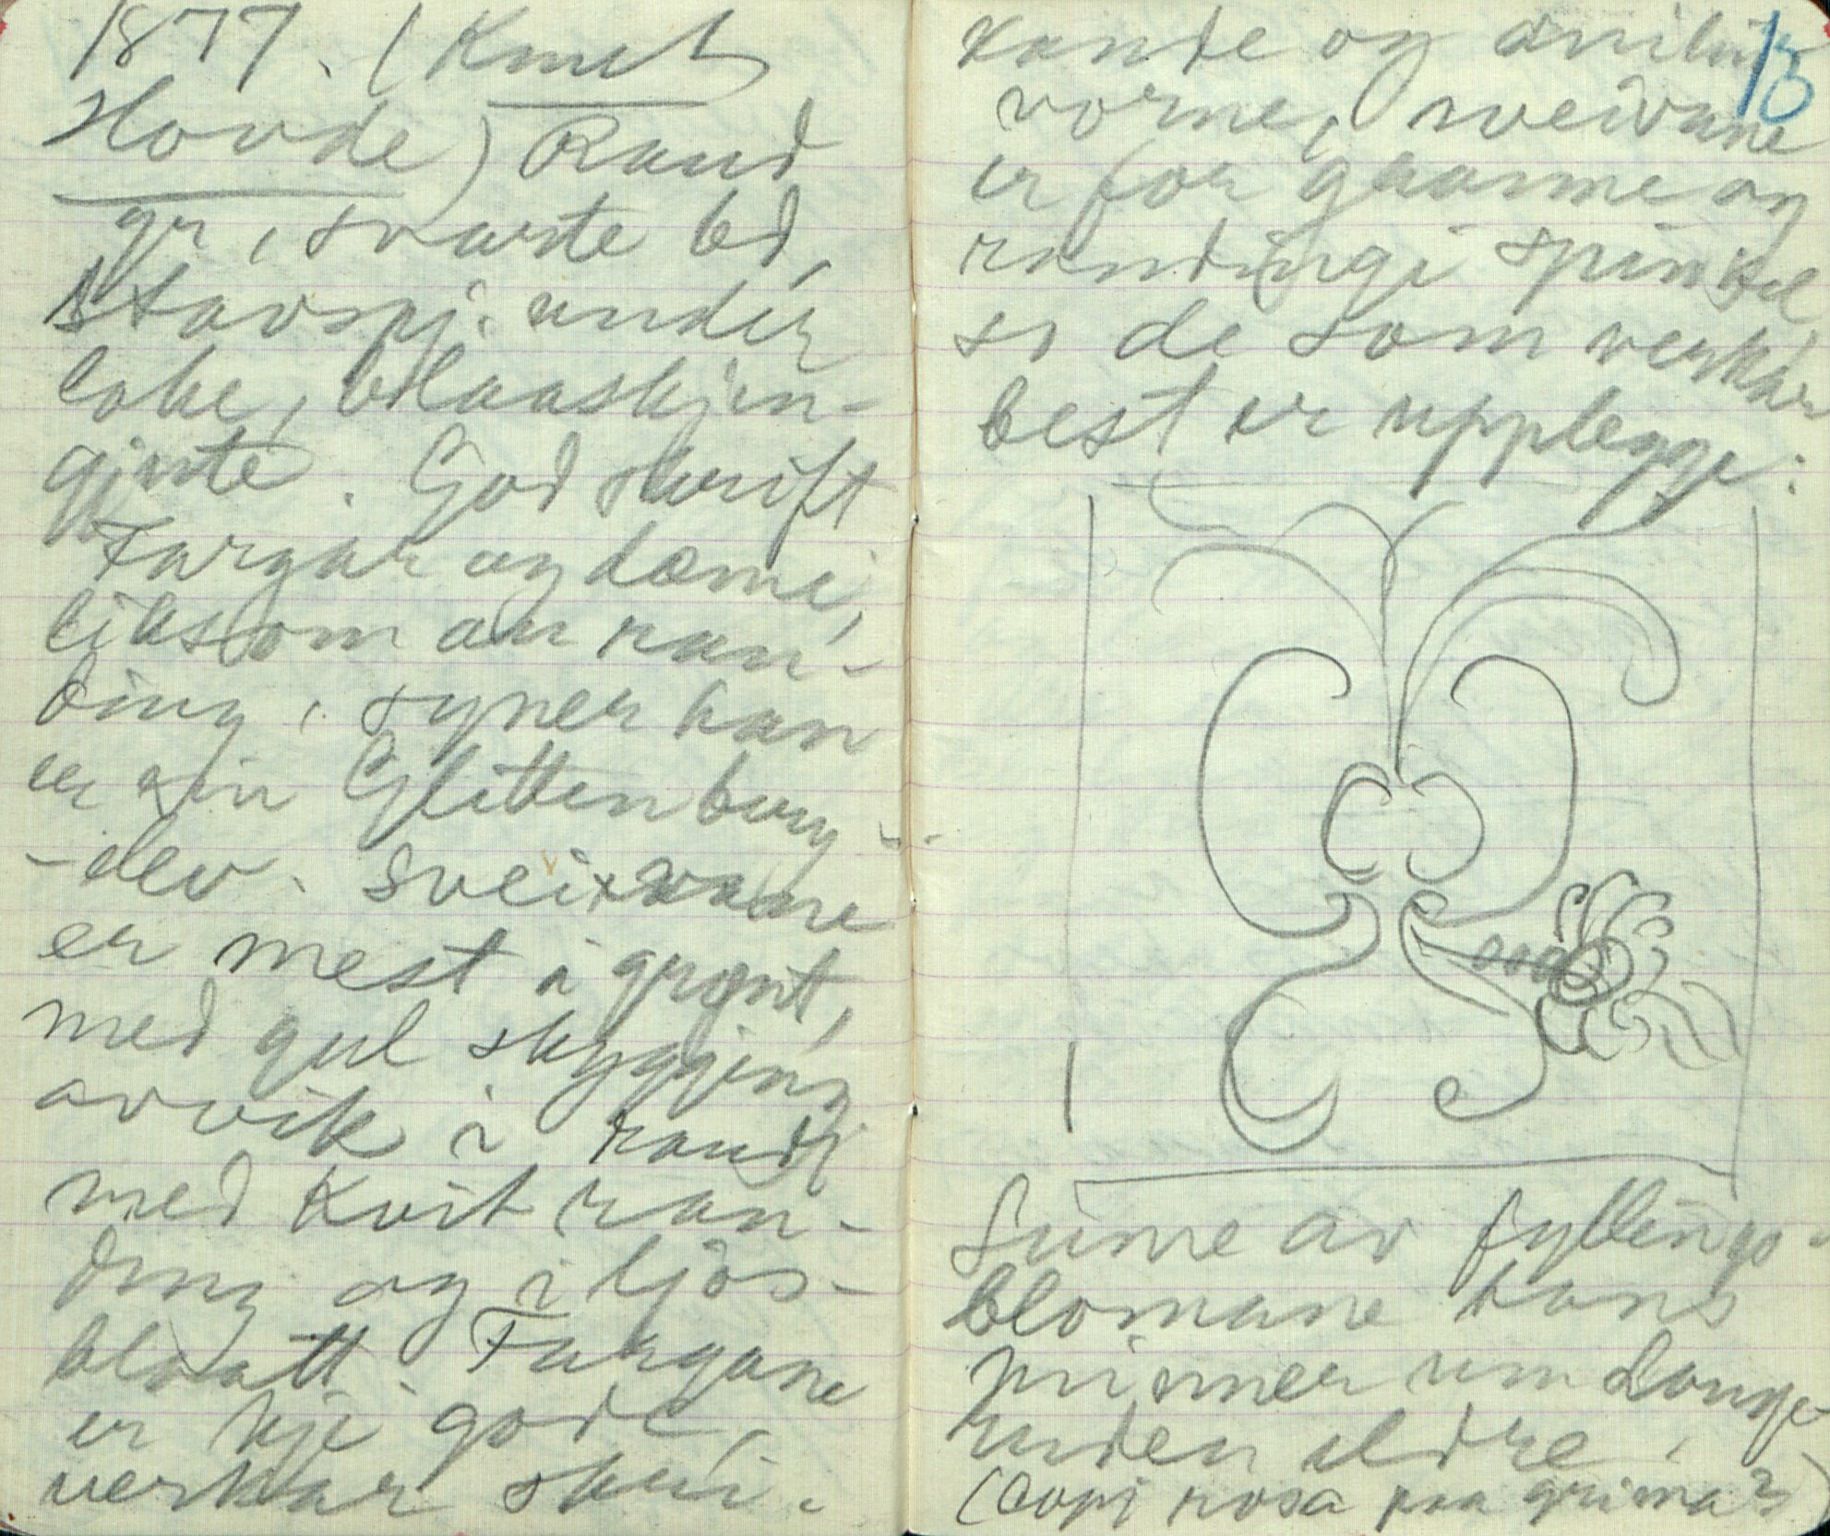 1877. (Knut
Hovde) Raud
gr, svarte bd,
Stavspj. under
loke, blaaskjen-
gjute. God skrift
Fargar og døme,
liksom au ran-
ding, syner han
er ein Glittenberg
-elev. Sveivane
er mest i grønt,
med gul skyggjing
avvik i raudt
med kvit ran-
ding og i ljos-
blaatt. Fargane
er kje gode,
verkar skri-
13
kande og anilin
vorne, sveivane
er for grannne og
randingi spinkel
so de som verkar
best er upplegge:
Sume av fyllings-
blomane hans
minner um Lange-
ruden eldre.
(Copi rosa paa grima?)